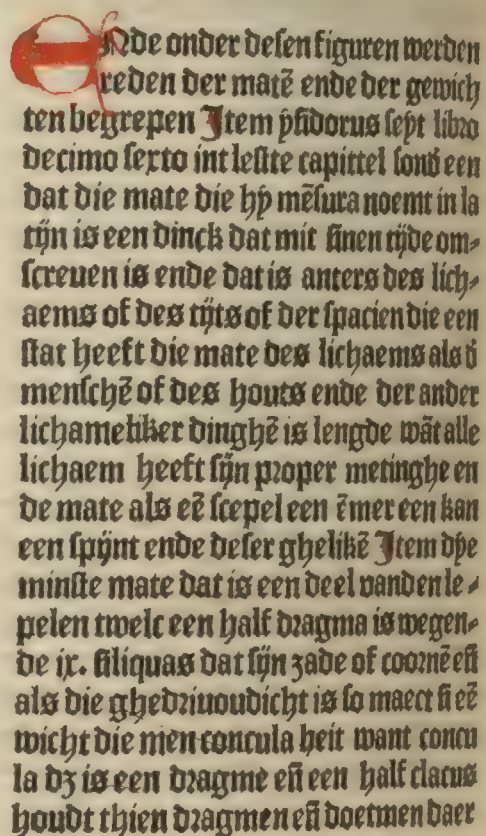 ENde onder desen figuren werden
reden der matē ende der gewich
ten begrepen Item ysidorus sept libro
decimo sexto int leste capittel sond een
dat die mate die hy mēsura noemt in la
tijn is een dinck dat mit sinen tijde om⸗
screuen is ende dat is anters des lich⸗
aems of des tijts of der spacien die een
stat heeft die mate des lichaems als d
menschē of des houts ende der ander
lichameliker dinghē is lengde wāt alle
lichaem heeft sijn proper metinghe en
de mate als eē scepel een ēmer een kan
een spijnt ende deser ghelikē Item dye
minste mate dat is een deel vanden le⸗
pelen twelc een half dragma is wegen⸗
de ix. siliquas dat sijn zade of coornē eñ
als die ghedriuoudicht is so maect si eē
wicht die men concula heit want concu
la dz is een dragme eñ een half ciatus
houdt thien dragmen eñ doetmen daer